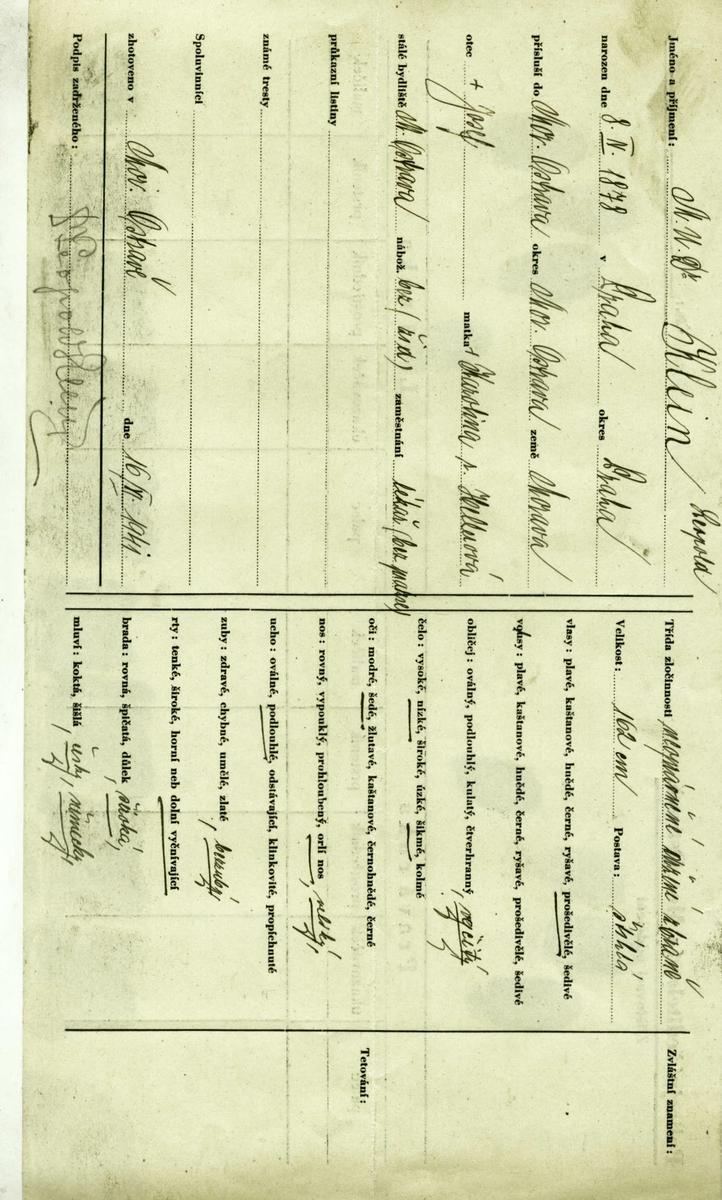 Jméno a příjmení: M.U.Dr Klein Leopold
narozen dne 8. IV. 1878 v Praha okres Praha
přísluší do Mor. Ostrava okres Mor. Ostrava země Morava
otec + Josef matka + Karolina r.
stálé bydliště M. Ostrava nábož. bez (žid) zaměstnání lékař (bez praxe)
průkazní listiny
známé tresty
Spoluvinníci
zhotoveno v Mor. Ostravě dne 16/VI. 1941.
Podpis zadrženého: Leopold Klein
Třída zločinnosti
Velikost: 162 cm Postava: štíhlá
vlasy: plavé, kaštanové, hnědé, černé, ryšavé, prošedivělé, šedivé
vousy: plavé, kaštanové, hnědé, černé, ryšavé, prošedivělé, šedivé
obličej: oválný, podlouhlý, kulatý, čtverhranný, vejčitý
čelo: vysoké, nízké, široké, úzké, šikmé, kolmé
oči: modré, šedé, žlutavé, kaštanové, černohnědé, černé
nos: rovný, vypouklý, prohloubený, orlí nos, velký,
ucho: oválné, podlouhlé, odstávající, klinkovité, propíchnuté
zuby: zdravé, chybné, umělé, zlaté, bezzubý
rty: tenké, široké, horní neb dolní vyčnívající
brada: rovná, špičatá, důlek, široká,
mluví: koktá, šišlá, česky, německy,
Zvláštní znamení:
Tetování: